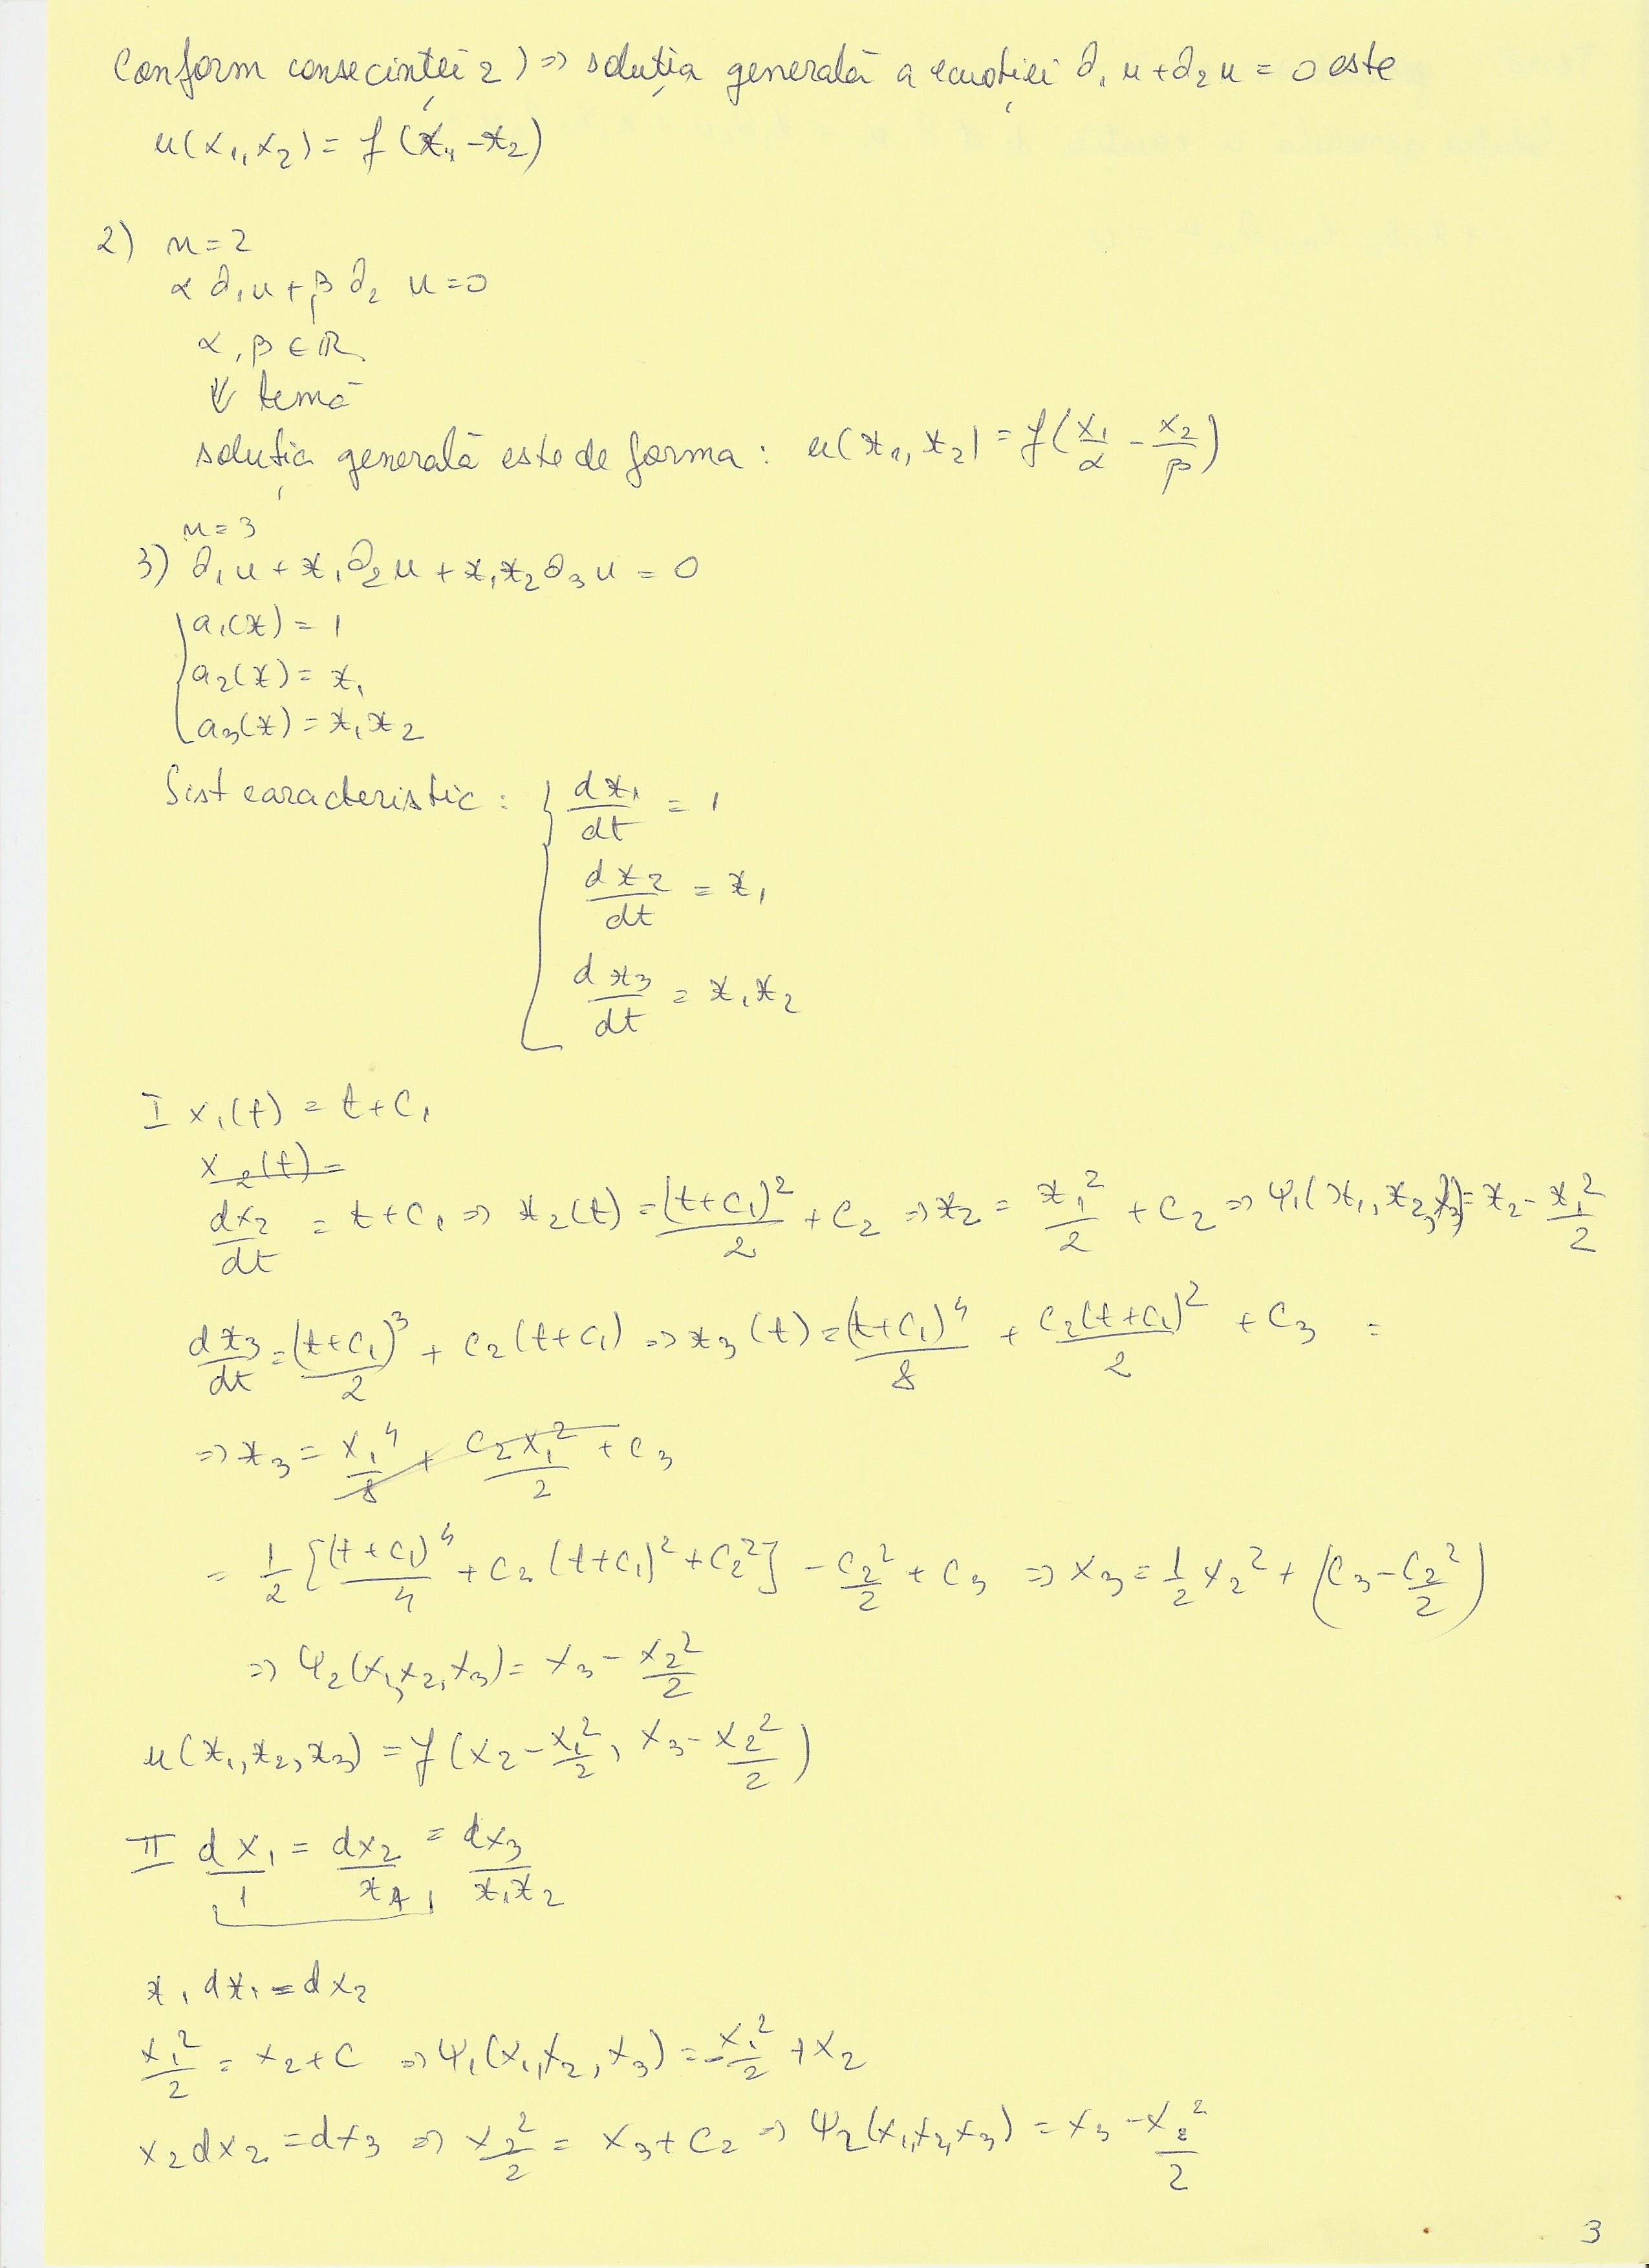 Conform consecinței 2) ⇒ soluția generală a ecuației ∂₁u+∂₂u = 0 este
u(x₁,x₂) = f(x₁-x₂)
2) n=2
α∂₁u+β∂₂ u=0
α, β ∈ ℝ
⇓ temă
soluția generală este de forma: u(x₁,x₂) = f(x₁/α - x₂/β)
n=3
3) ∂₁u + x₁∂₂u + x₁x₂∂₃u = 0
{ a₁(x) = 1
a₂(x) = x₁
a₃(x) = x₁x₂
Sist caracteristic : { dx₁/dt = 1
dx₂/dt = x₁
dx₃/dt = x₁x₂
I x₁(t) = t+C₁
x₂(t)=
dx₂/dt = t+C₁ ⇒ x₂(t) = (t+C₁)²/2 + C₂ ⇒ x₂ = x₁²/2 + C₂ ⇒ φ₁(x₁,x₂,x₃) = x₂ - x₁²/2
dx₃/dt = (t+C₁)³/2 + C₂(t+C₁) ⇒ x₃(t) = (t+C₁)⁴/8 + C₂(t+C₁)²/2 + C₃ =
⇒ x₃ = x₁⁴/8 + C₂x₁²/2 + C₃
= 1/2 [(t+C₁)⁴/4 + C₂(t+C₁)² + C₂²] - C₂²/2 + C₃ ⇒ x₃ = 1/2 x₂² + (C₃ - C₂²/2)
⇒ φ₂(x₁,x₂,x₃) = x₃ - x₂²/2
u(x₁,x₂,x₃) = f(x₂ - x₁²/2, x₃ - x₂²/2)
II dx₁/1 = dx₂/x₁ = dx₃/x₁x₂
x₁dx₁ = dx₂
x₁²/2 = x₂+C ⇒ φ₁(x₁,x₂,x₃) = -x₁²/2 + x₂
x₂dx₂ = dx₃ ⇒ x₂²/2 = x₃+C₂ ⇒ φ₂(x₁,x₂,x₃) = x₃ - x₂²/2
3